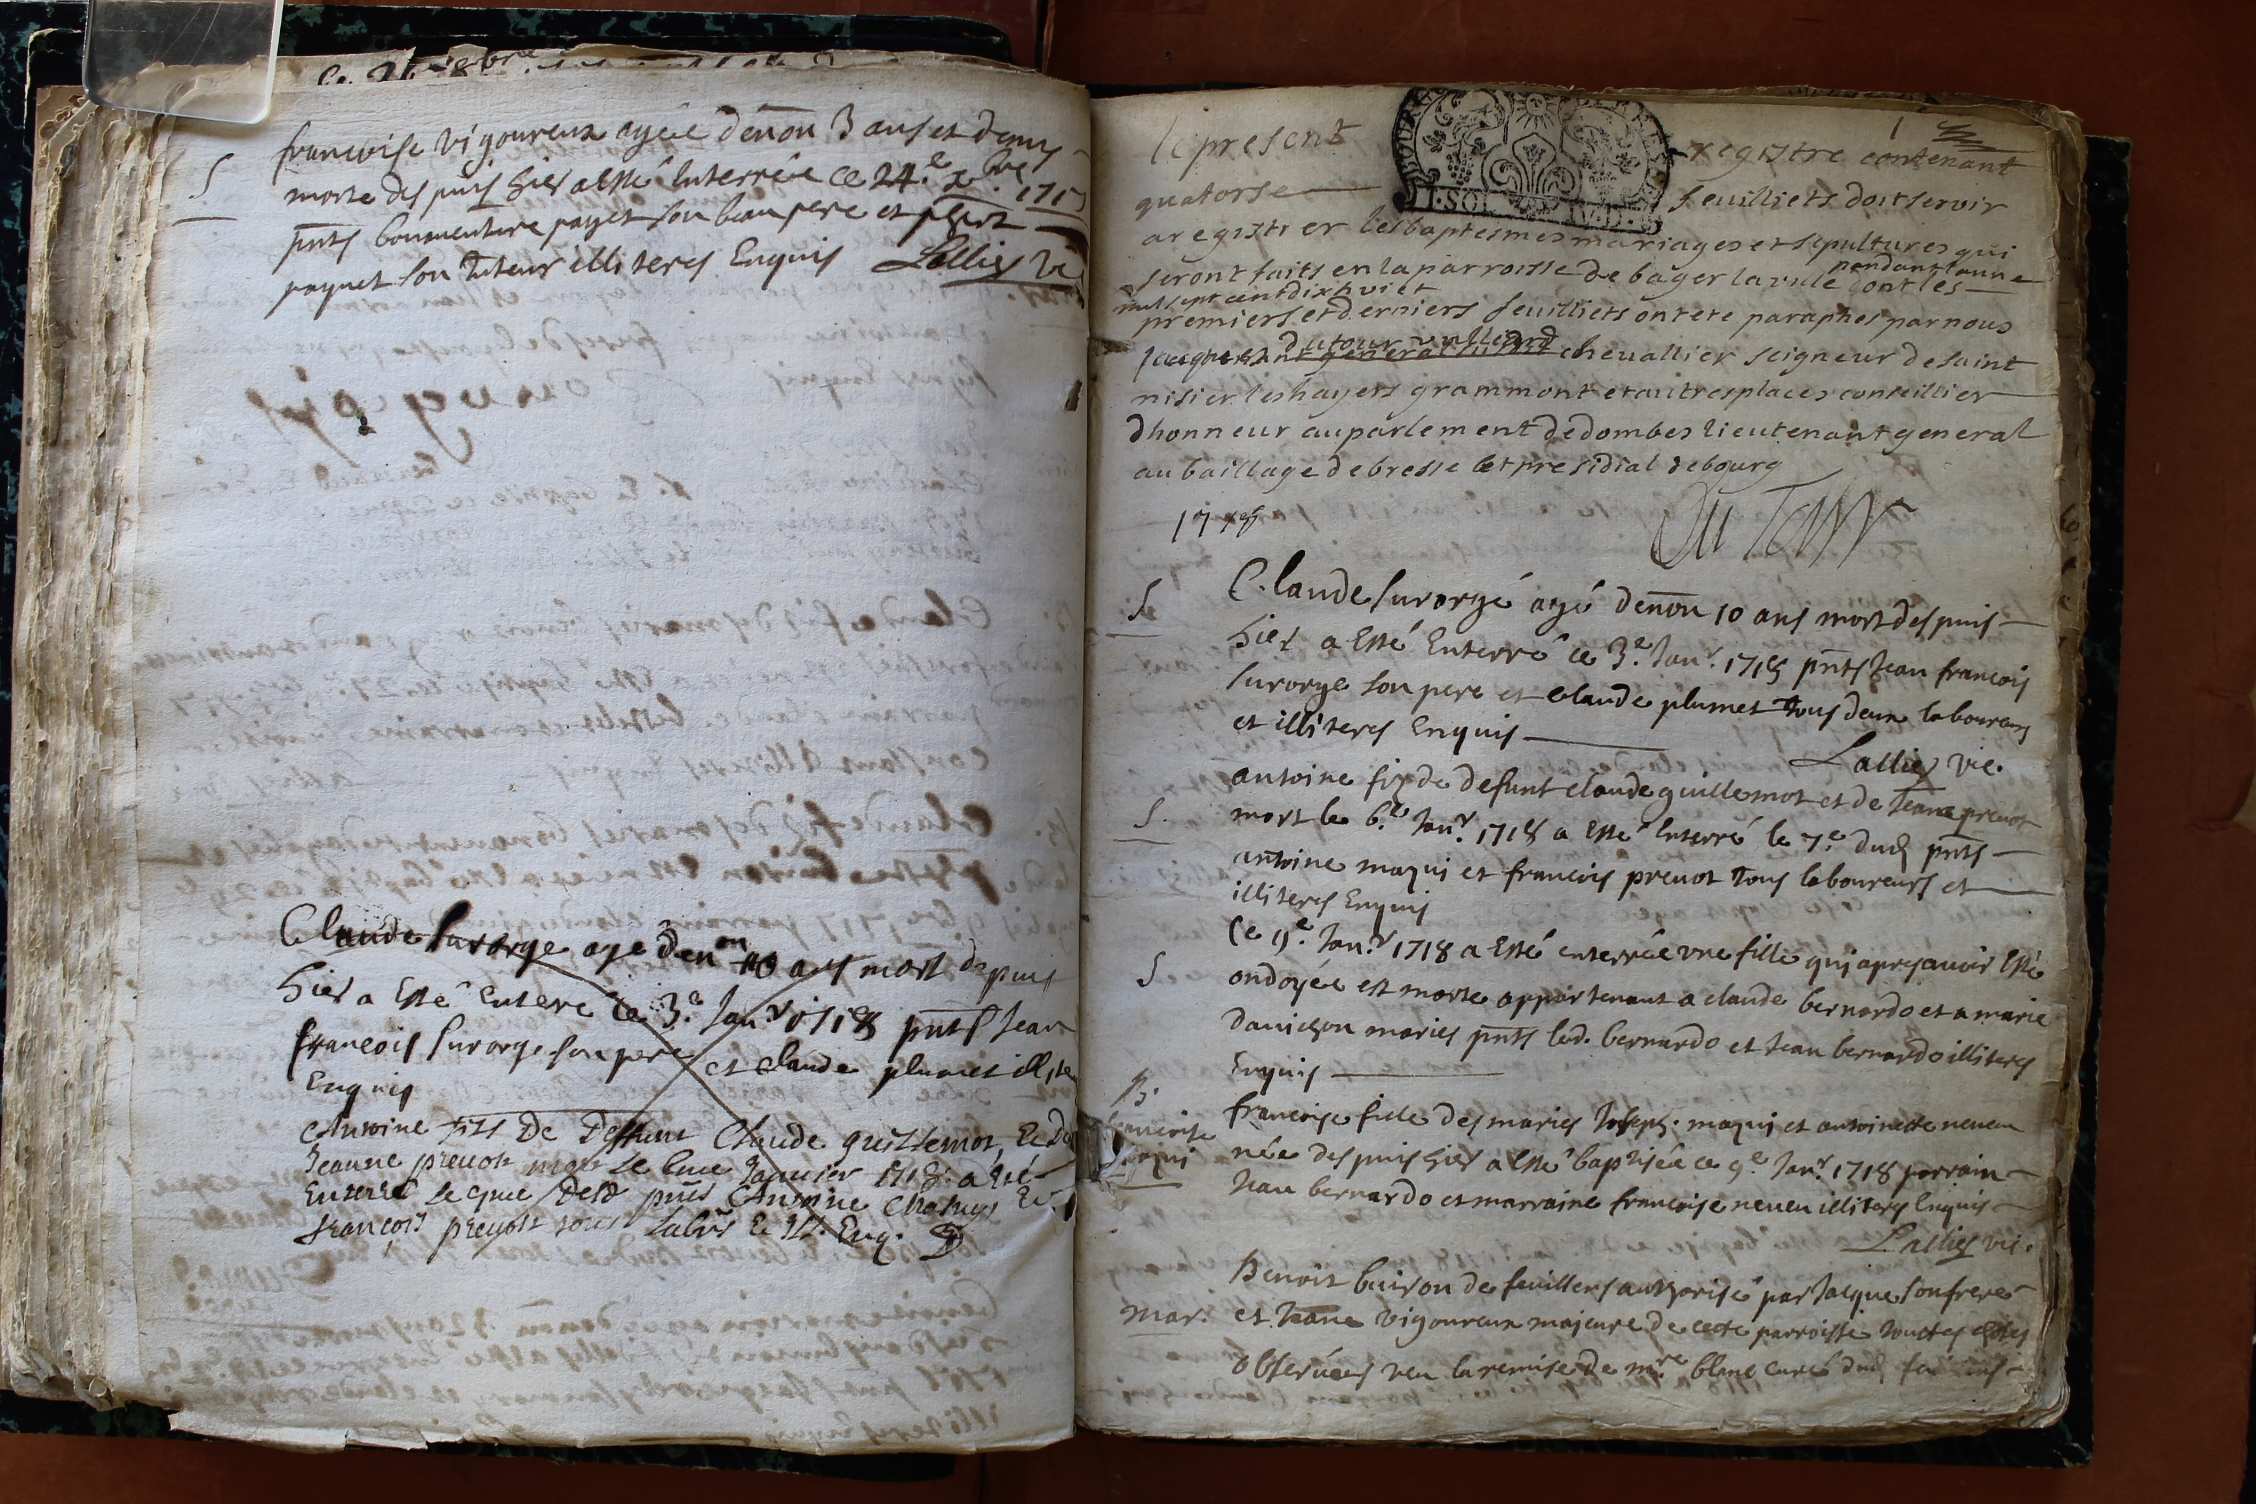 S
francoise vigoureux agée denon 3 ans et demy
morte despuis hier a esté Enterrée ce 24.e xbre 1717
pnts bonaventure payet son beau pere et
payet son tuteur illiteres Enquis Lallier vi
Claude Survorge age denon 10 ans mort depuis
hier a Esté Enteré ce 3.e Janr 1718 pnts Jean
francois Survorge son pere et claude plumet illite
Enquis
Antoine fils De Deffunt Claude guillemot, Et De
Jeanne prevost mort le 6me Janvier 1718. a Eté
Enterré le 7me Dud pnts Antoine Et
françois prevost tous labrs Et Ill. Enq.
1
le present registre contenant
quatorse feuilliets doit servir
II·SOL IV·D
aregistrer les baptesmes mariages et sepultures qui
seront faits en la parroisse de bâger la ville pendant lanne
mil sept cent dix huict dont les
premiers et derniers feuilliets ont ete paraphes par nous
Jacques dutour vulliard chevallier seigneur de saint
nisier les hayers grammont et autres places conseillier
dhonneur au parlement de dombes lieutenant general
au baillage de bresse et presidial de bourg
1718
Du Tour
S
Claude Survorgé agé denon 10 ans mort despuis
hier a Esté Enterré ce 3.e Janr. 1718 pnts Jean francois
Survorge son pere et claude plumet Tous deux laboureurs
et illiteres Enquis
Lallier vic.
S.
antoine fiz de defunt claude guillemot et de Jeane prevot
mort le 6.e Janr. 1718 a Esté Enterré le 7.e dud pnts
antoine maqui et francois prevot Tous laboureurs et
illiteres Enquis
S
Ce 9.e Janr 1718 a Esté enterrée une fille qui apres avoir Esté
ondoyée est morte appartenant a claude bernardo et a marie
danichon maries pnts led. bernardo et Jean bernardo illiteres
Enquis
B.
francoise
maqui
francoise fille des maries Joseph. maqui et antoinette neveu
née despuis hier a Esté baptisée ce 9.e Janr 1718 parrain
Jean bernardo et marraine francoise neveu illiteres Enquis
Lallier vic.
mar.
Benoit buison de feuillens authorisé par Jacque son frere
et Jeane vigoureux majeure de cette parroisse touttes choses
observées veu la remise de mre blanc curé dud